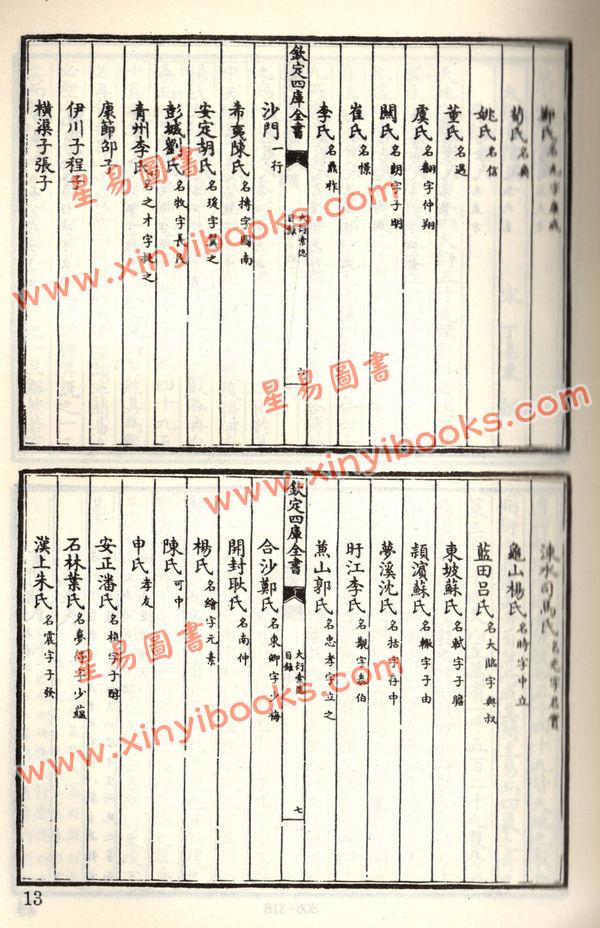 鄭氏名玄字康成
荀氏名爽
姚氏名信
董氏名遇
虞氏名翻字仲翔
關氏名朗字子明
崔氏名憬
李氏名鼎祚
欽定四庫全書
大衍索隱
目録
六
沙門一行
希夷陳氏名摶字圖南
安定胡氏名瑗字翼之
彭城劉氏名牧字長民
青州李氏名之才字挺之
康節邵子
伊川子程子
橫渠子張子
涑水司馬氏名光字君實
龜山楊氏名時字中立
藍田呂氏名大臨字與叔
東坡蘇氏名軾字子瞻
潁濱蘇氏名轍字子由
夢溪沈氏名括字存中
盱江李氏名覯字泰伯
蒹山郭氏名忠孝字立之
欽定四庫全書
大衍索隱
目録
七
合沙鄭氏名東卿字少梅
開封耿氏名南仲
楊氏名繪字元素
陳氏可中
申氏孝友
安正潘氏名植字子醇
石林葉氏名夢得字少蘊
漢上朱氏名震字子發
13
806-318
星易圖書
www.xinyibooks.com
星易圖書
www.xinyibooks.com
星易圖書
www.xinyibooks.com